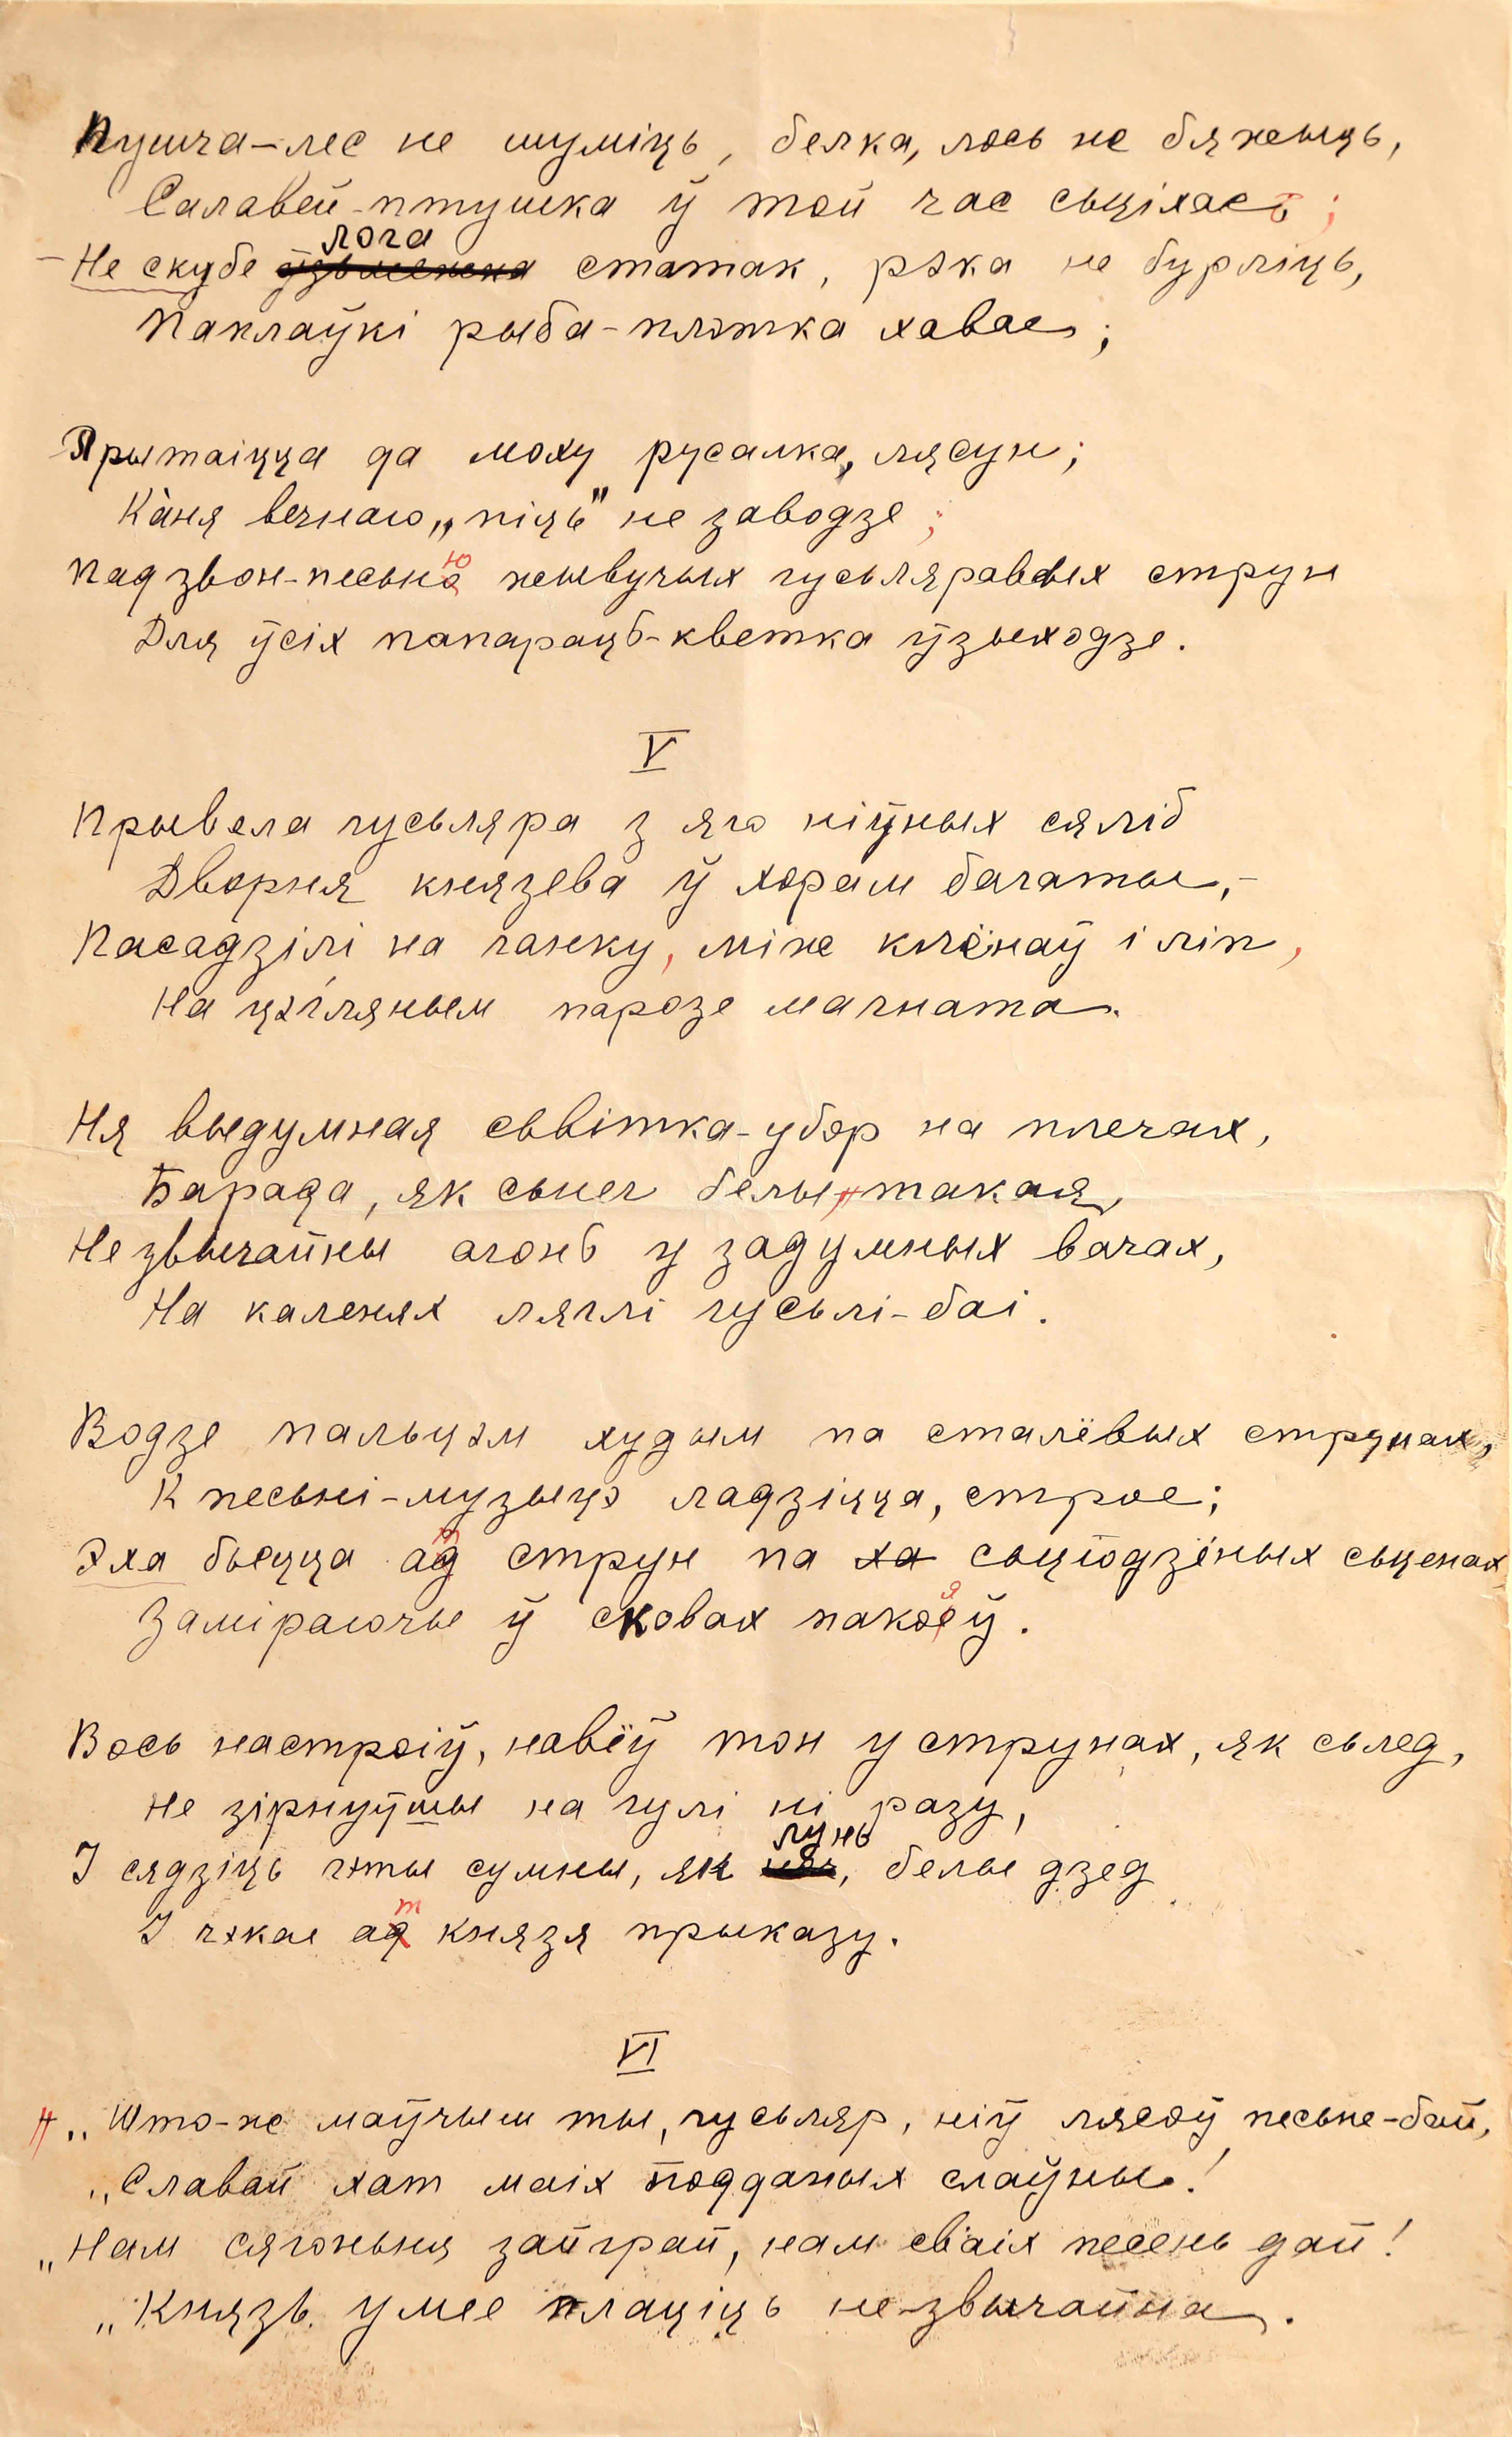 Пушча-лес не шуміць, белка, лось не бяжыць,
Салавей-птушка ў той час сьціхае;
Не скубе лога статак, рэка не бурліць,
Паплаўкі рыба-плотка хавае;
Прытаіцца да моху русалка, лясун;
Ка̀ня вечнаю „піць" не заводзе;
Пад звон-песьню жывучых гусьляравых струн
Для ўсіх папараць-кветка ўзыходзе.
V
Прывела гусьляра з яго ніўных сяліб
Дворня князева ў хорам багаты,-
Пасадзілі на ганку, між клёнаў і ліп,
На цэгляным парозе магната.
Ня выдумная сьвітка-убор на плечах,
Барада, як сьнег белы-такая,
Незвычайны агонь у задумных вачах,
На каленях ляглі гусьлі-баі.
Водзе пальцэм худым па сталёвых струнах,
К песьні-музыцэ ладзіцца, строе;
Эха бьецца ат струн па сьцюдзёных сьценах
Заміраючы ў сковах пакояў.
Вось настроіў, навёў тон у струнах, як сьлед,
Не зірнуўшы на гулі ні разу,
І сядзіць гэты сумны, як лунь, белы дзед
І чэкае ат князя прыказу.
VI
„Што-ж маўчыш ты, гусьляр, ніў лясоў песьне-бай,
„Славай хат маіх подданых слаўны!
„Нам сягоньня зайграй, нам сваіх песень дай!
„Князь умее плаціць незвычайна.